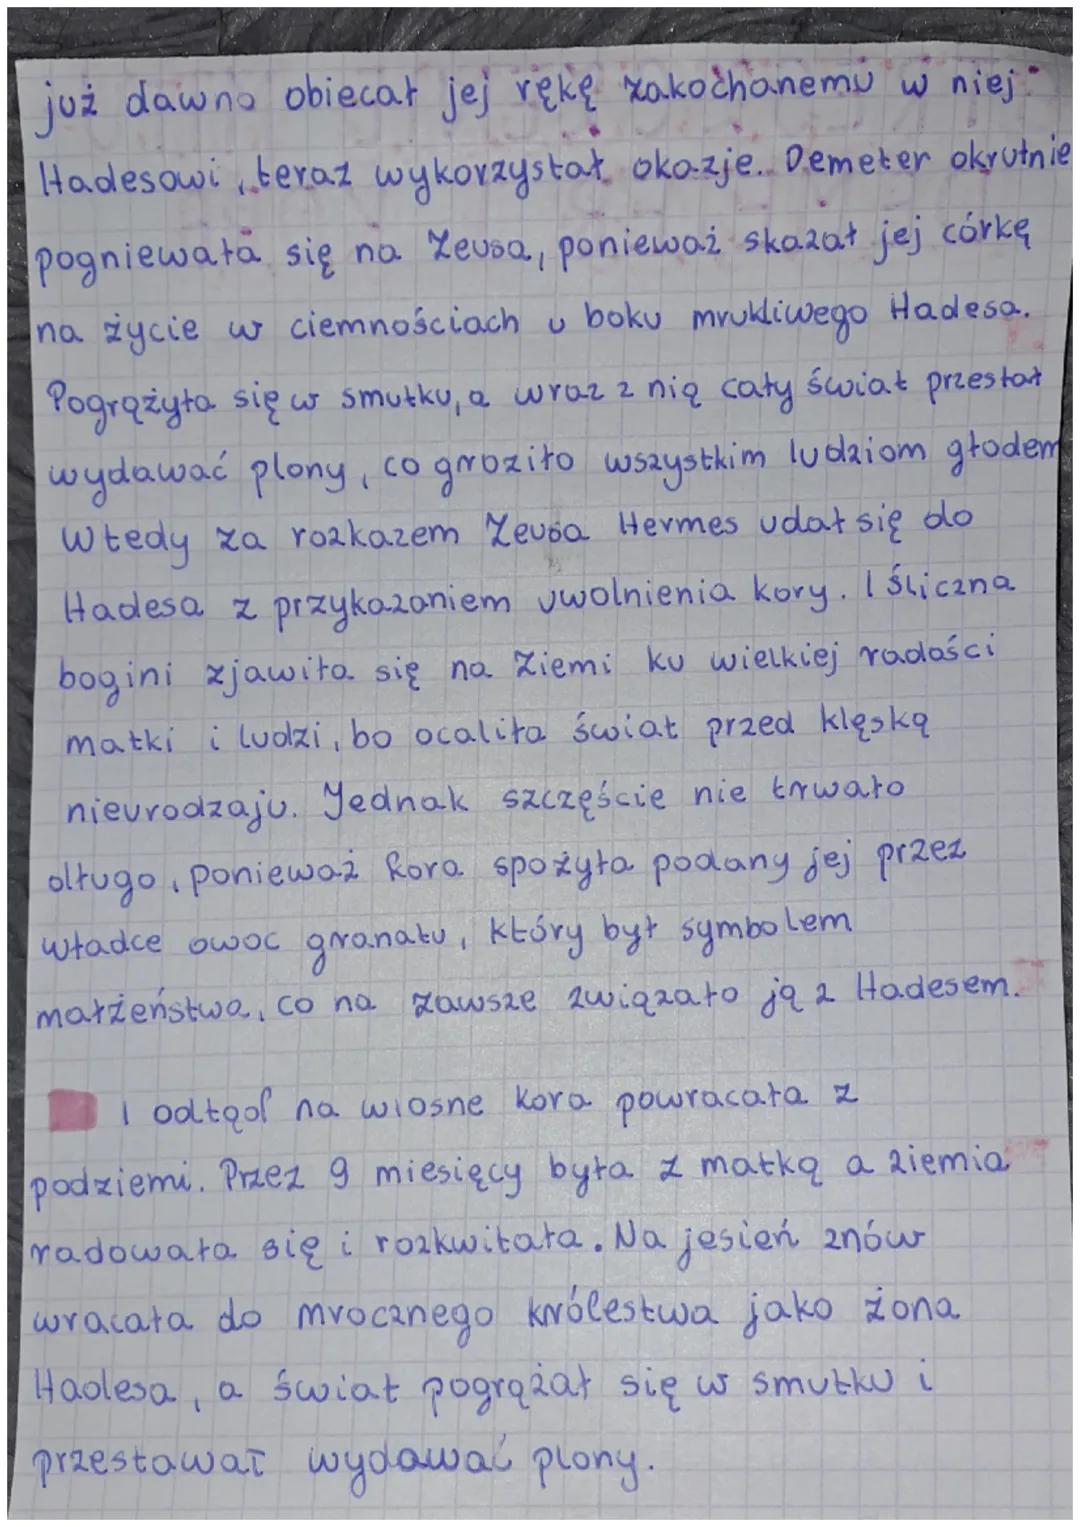 już dawno obiecał jej rękę zakochanemu w niej
Hadesowi, teraz wykorzystał okazje. Demeter okrutnie
pogniewała się na Zeusa, ponieważ skazał jej córkę
na życie w ciemnościach u boku mrukliwego Hadesa.
Pogrążyła się w smutku, a wraz z nią cały świat przestał
wydawać plony, co groziło wszystkim ludziom głodem
Wtedy za rozkazem Zeusa Hermes udał się do
Hadesa z przykazaniem uwolnienia kory. I śliczna
bogini zjawiła się na Ziemi ku wielkiej radości
matki i ludzi, bo ocaliła świat przed klęską
nieurodzaju. Jednak szczęście nie trwało
długo, ponieważ Kora spożyła podany jej przez
władce owoc granatu, który był symbolem
małżeństwa, co na zawsze związało ją z Hadesem.
I odtąd na wiosne Kora powracała z
podziemi. Przez 9 miesięcy była z matką a ziemia
radowała się i rozkwitała. Na jesień znów
wracała do mrocznego królestwa jako żona
Hadesa, a świat pogrążał się w smutku i
przestawał wydawać plony.